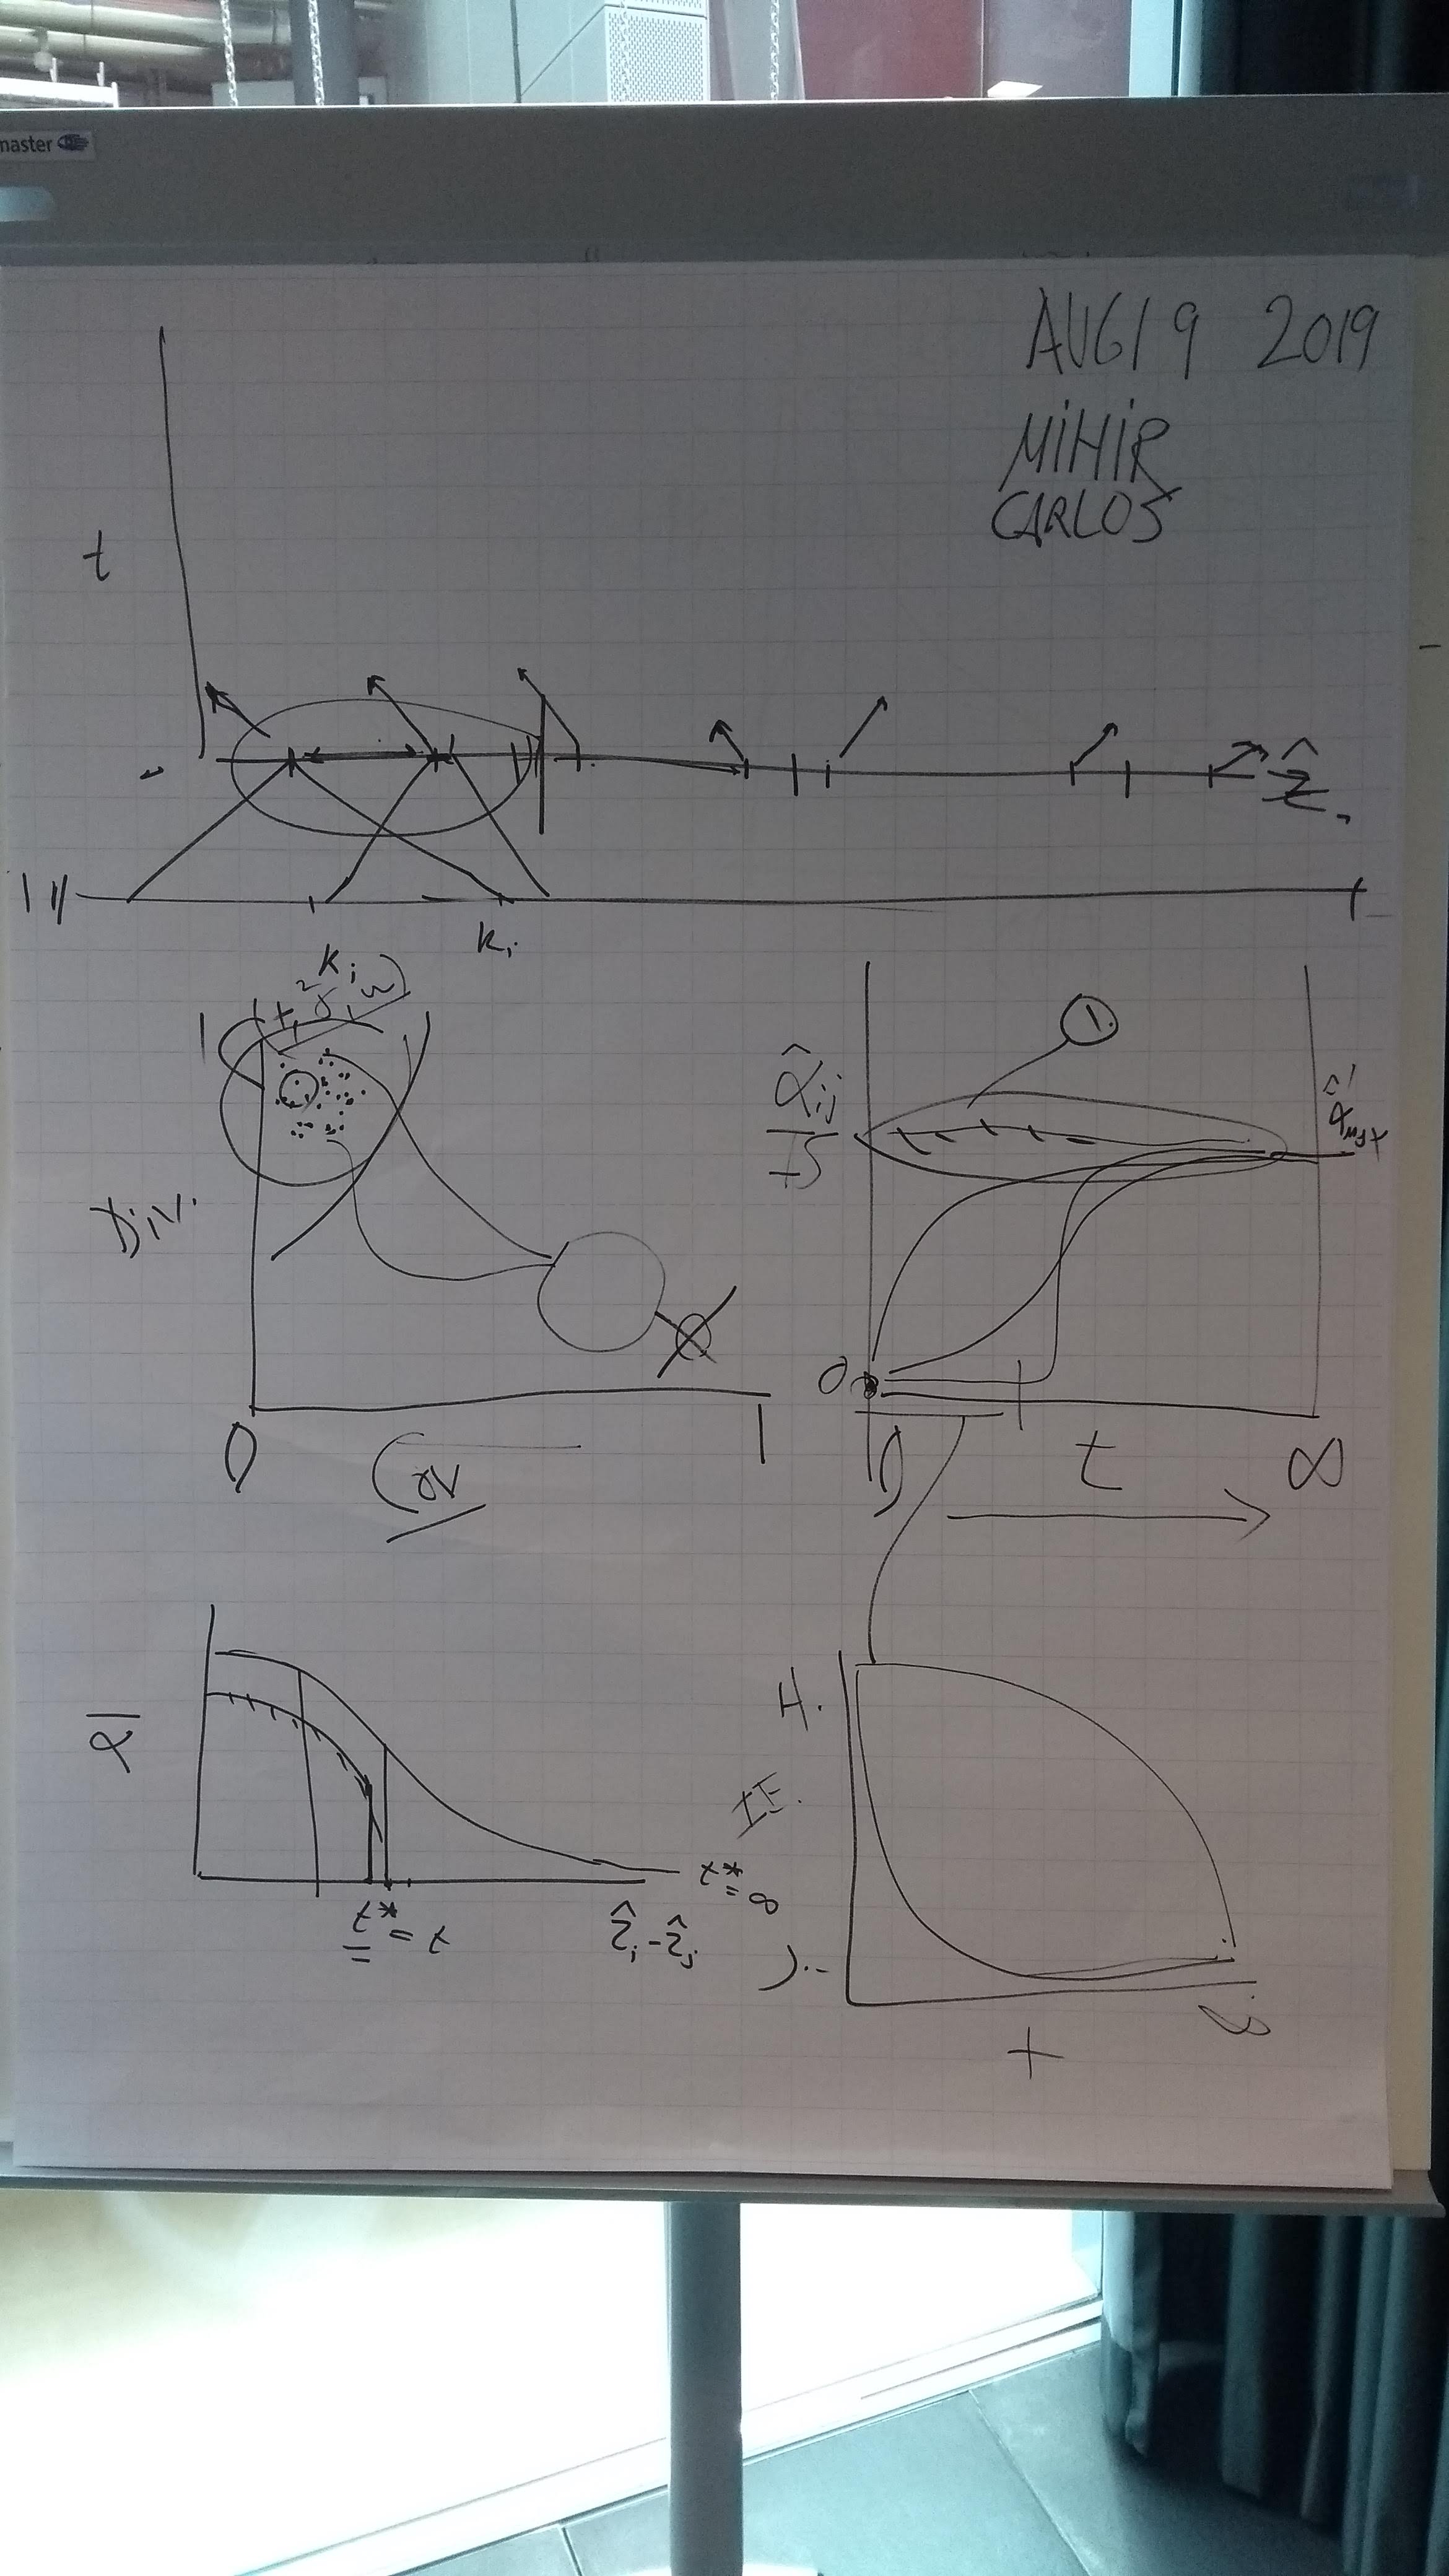 master
AUG 19 2019
MIHIR
CARLOS
t
ẑ
Ki
Kj
1
Div.
0
Cov
1
①
α̂ij
α̂max
0
0
t
∞
ᾱ
t* = t
ẑi - ẑj
t* = ∞
H.
IE.
t